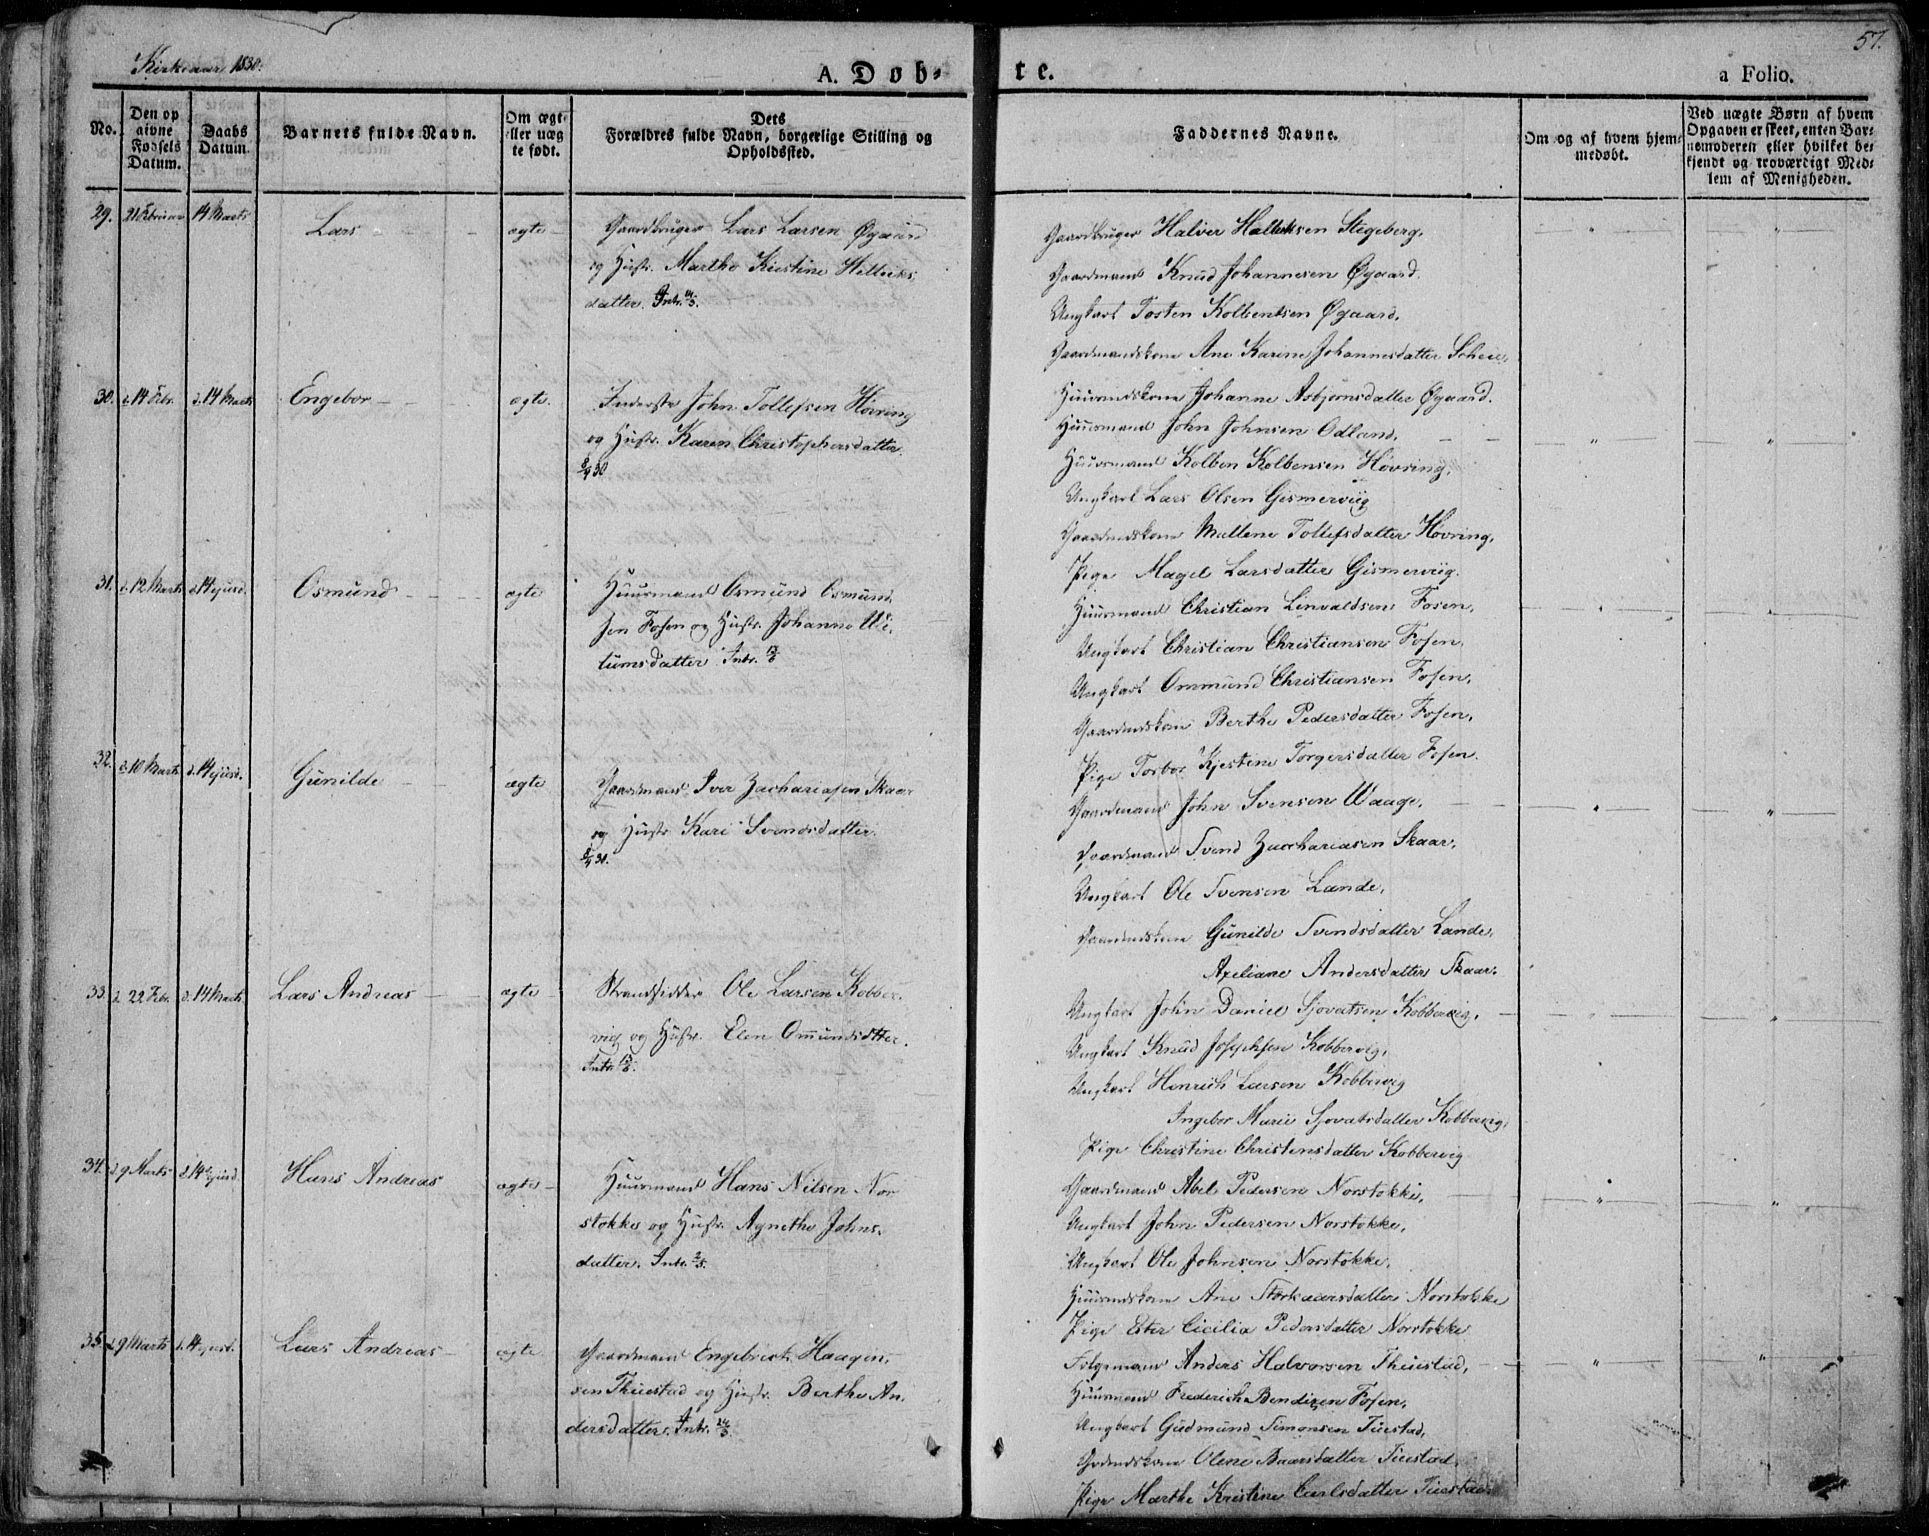 Kirkeaar 1830.
A. Døb-
te.
57.
a Folio.
No.
Den op
givne
Fødsels
Datum.
Daabs
Datum.
Barnets fulde Navn.
Om ægt-
eller uæg
te født.
Dets
Forældres fulde Navn, borgerlige Stilling og
Opholdssted.
Faddernes Navne.
Om og af hvem hjem-
medøbt.
Ved uægte Børn af hvem
Opgaven er skeet, enten Bar-
nemoderen eller hvilket be-
kjendt og troværdigt Med-
lem af Menigheden.
29. 21 Februar 14 Marts Lars ægte Gaardbruger Lars Larsen Øgaard
og Hustr. Marthe Kiestine Helleiks
datter. Intr. 14/3.
Gaardbruger Halver Halleksen Stegeberg,
Gaardmand Knud Johannesen Øgaard.
Ungkarl Tosten Kolbentsen Øgaard,
Gaardmandskone Ane Karine Johannesdatter Scheie,
Huusmdskone Johanne Asbjørnsdatter Øgaard.
30. d. 14 Febr. d. 14 Marts Engebor ægte. Inderste John Tollefsen Høvring
og Hustr. Karen Christophersdatter.
8/4 30
Huusmand John Johnsen Odland,
Huusmand Kolben Kolbensen Høvring,
Ungkarl Lars Olsen Gismerviig
Gaardmdskone Mallene Tollefsdatter Høvring,
Pige Magel Larsdatter Gismerviig.
31. d. 12 Marts d. 14 ejusd. Osmund ægte Huusmand Osmund Osmund
sen Fosen og Hustr. Johanne We-
tumsdatter Intr.
Huusmand Christian Linvaldsen Fosen,
Ungkarl Christian Christiansen Fosen,
Ungkarl Ommund Christiansen Fosen,
Gaardmdskone Berthe Pedersdatter Fosen,
Pige Torbor Kjestine Torgersdatter Fosen.
32. d. 10 Marts d. 14 ejusd. Gunilde ægte Gaardmand Iver Zachariasen Skaar
og Hustr Kari Svendsdatter.
8/4 30.
Gaardmand John Svensen Waage,
Gaardmand Svend Zacchariasen Skaar,
Ungkarl Ole Svensen Lande,
Gaardmdskone Gunilde Svendsdatter Lande,
Axeliane Andersdatter Skaar.
33. d. 22 Febr. d. 14 Marts Lars Andreas ægte Strandsidder Ole Larsen Kobber-
vig og Hustr. Elen Omundsdtter.
Intr.
Ungkarl John Daniel Sjovatsen Kobbervig,
Ungkarl Knud Josephsen Kobbervig,
Ungkarl Henrich Larsen Kobbervig
Ingebor Marie Sjovatsdatter Kobbervig,
Pige Christine Christensdatter Kobbervig
34. d. 9 Marts d. 14 ejusd. Hans Andreas ægte Huusmand Hans Nilsen Nor
stokke og Hustr. Agnethe Johns-
datter. Intr. 2/5.
Gaardmand Abel Pedersen Norstokke,
Ungkarl John Pedersen Norstokke,
Ungkarl Ole Johnsen Norstokke,
Huusmdskone Ane Storkaarsdatter Norstokke
Pige Ester Cicilia Pedersdatter Norstokke
35. d. 9 Marts d. 14 ejusd. Lars Andreas ægte Gaardmand Engebrect Haagen-
sen Thuestad og Hustr. Berthe An-
dersdatter. Intr.
Folgemand Anders Halvorsen Thuestad,
Huusmand Frederich Bendixen Fosen,
Ungkarl Gudmund Simonsen Tuestad,
Gaardmdskone Olene Baarsdatter Tuestad
Pige Marthe Kristine Carlsdatter Tuestad